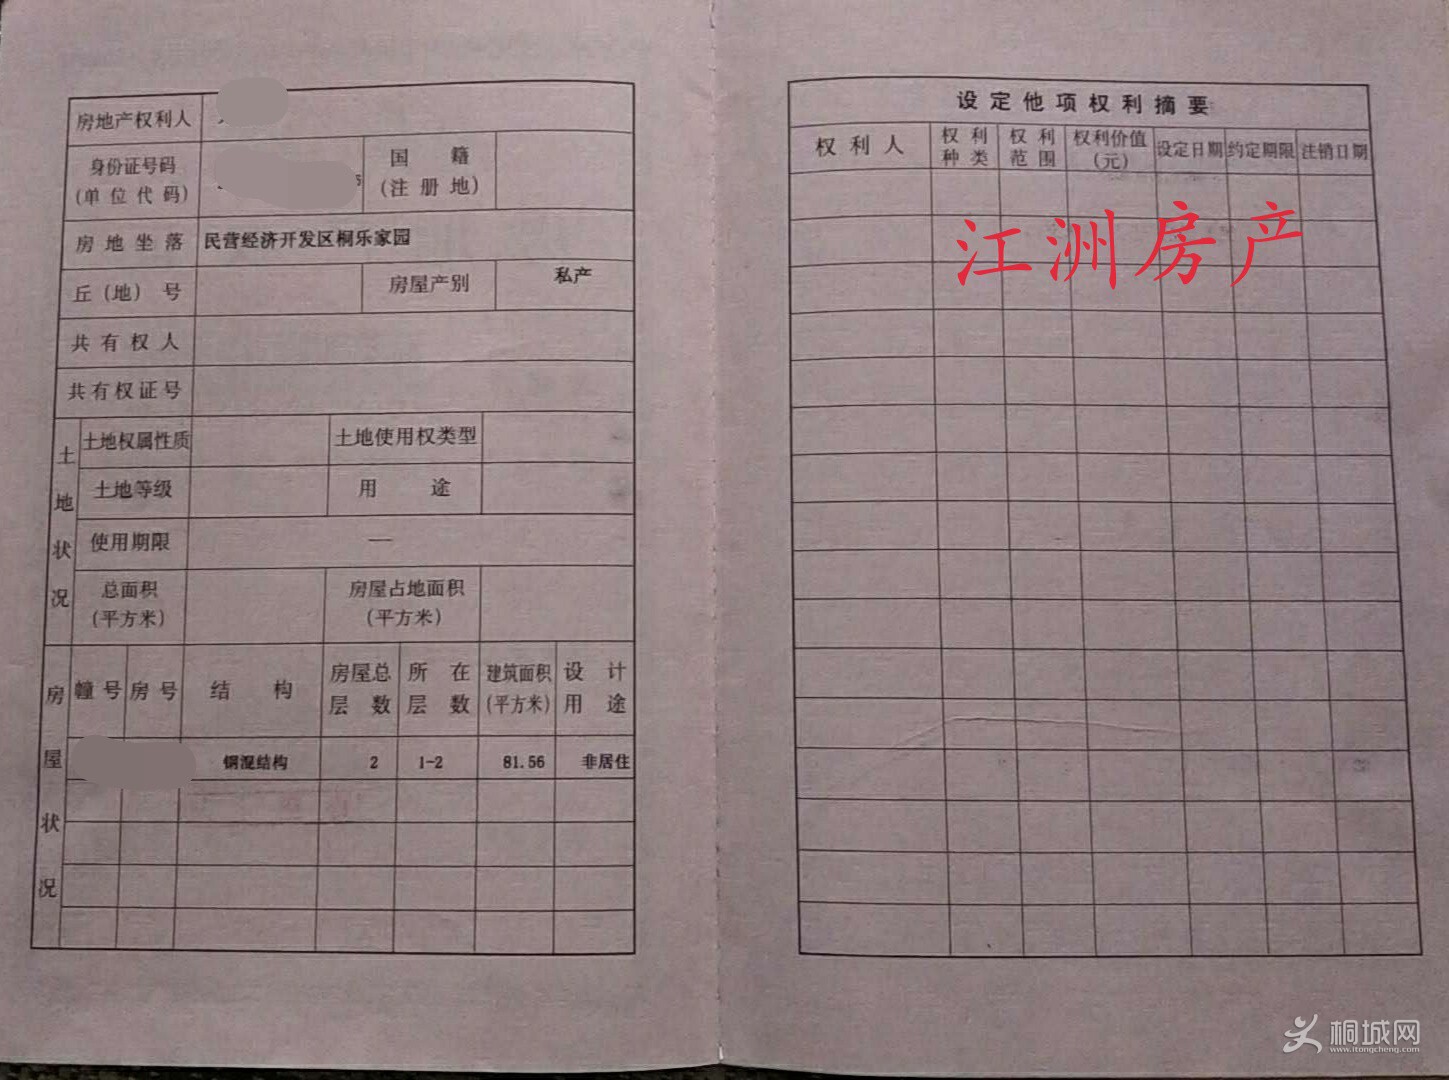 房地产权利人
身份证号码
(单位代码)
国籍
(注册地)
房地坐落 民营经济开发区桐乐家园
丘(地)号 房屋产别 私产
共有权人
共有权证号
土地状况
土地权属性质 土地使用权类型
土地等级 用途
使用期限 —
总面积
(平方米)
房屋占地面积
(平方米)
房屋状况
幢号 房号 结构 房屋总层数 所在层数 建筑面积(平方米) 设计用途
钢混结构 2 1-2 81.56 非居住
设定他项权利摘要
权利人 权利种类 权利范围 权利价值(元) 设定日期 约定期限 注销日期
江洲房产
桐城网
www.itongcheng.com